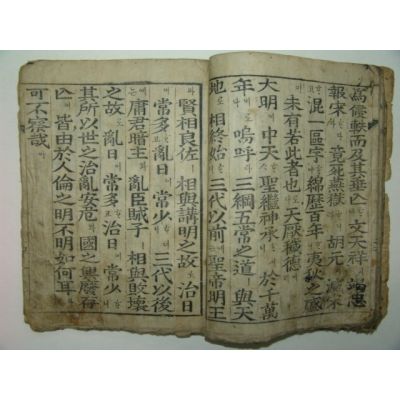 為侵軼而及其垂亾 文天祥 竭忠
報宋 竟死燕獄 胡元 滅宋
混一區宇 綿歷百年 夷狄之盛
未有若此者也 天厭穢德
大明 中天 聖繼神承 於千萬
年 嗚呼 三綱五常之道 與天
地 相終始 三代以前 聖帝明王
賢相良佐 相與講明之故 治日
常多 亂日 常少 三代以後
庸君暗主 亂臣賊子 相與敗壞
之故 亂日 常多 治日 常少
其所以世之治亂安危 國之興廢存
亾 皆由於人倫之明不明如何耳
可不察哉